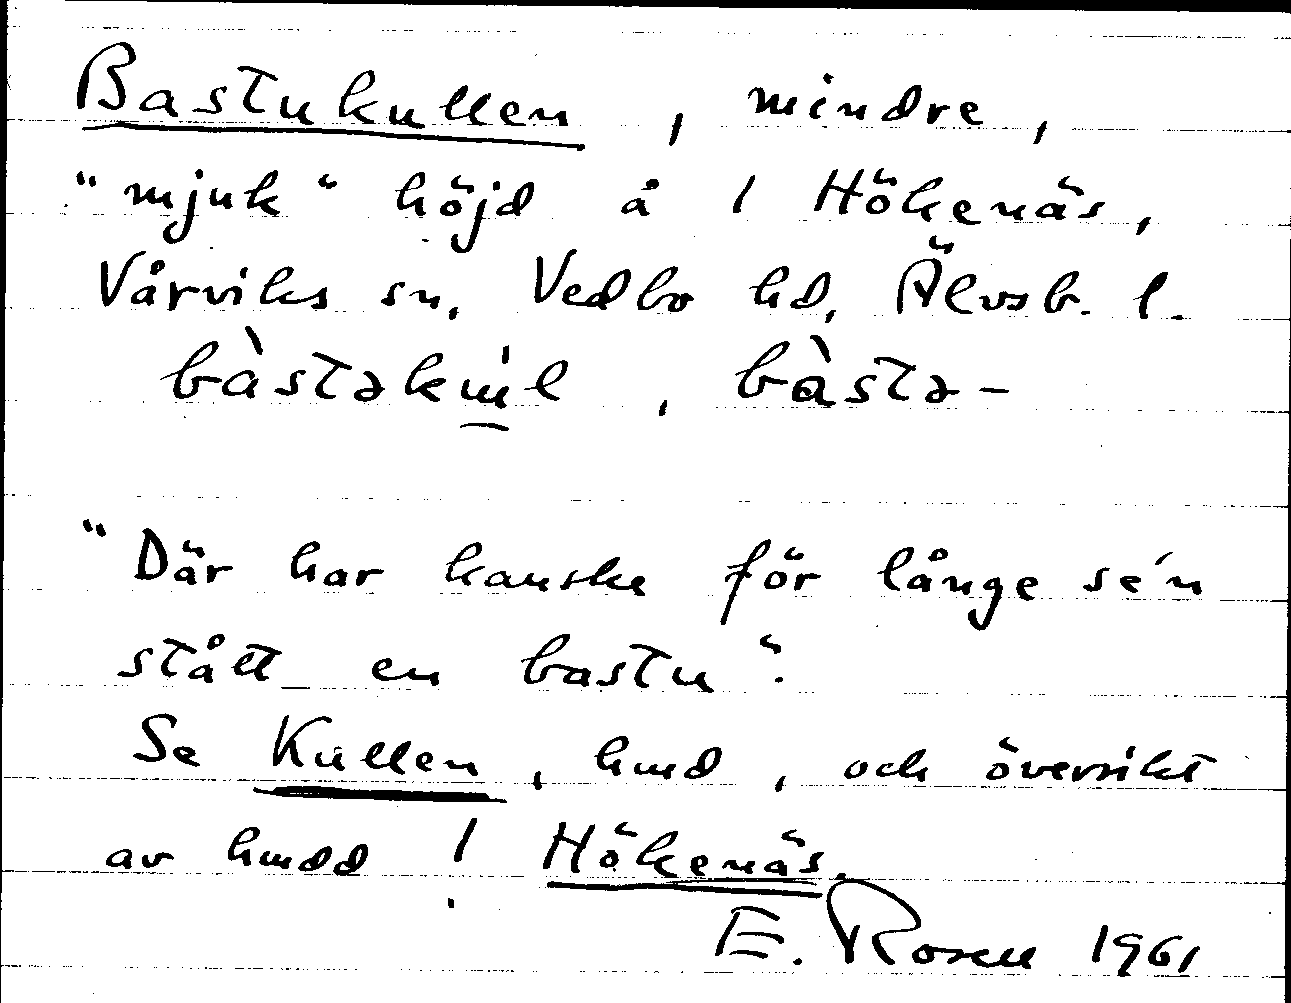 Bastukullen, mindre,
"mjuk" höjd å 1 Hökenäs,
Vårviks sn, Vedbo hd, Älvsb. l.
bàstəku̍l, bàstə-
"Där har kanske för länge se'n
stått en bastu".
Se Kullen, hmd, och översikt
av hmdd 1 Hökenäs.
E. Rosell 1961